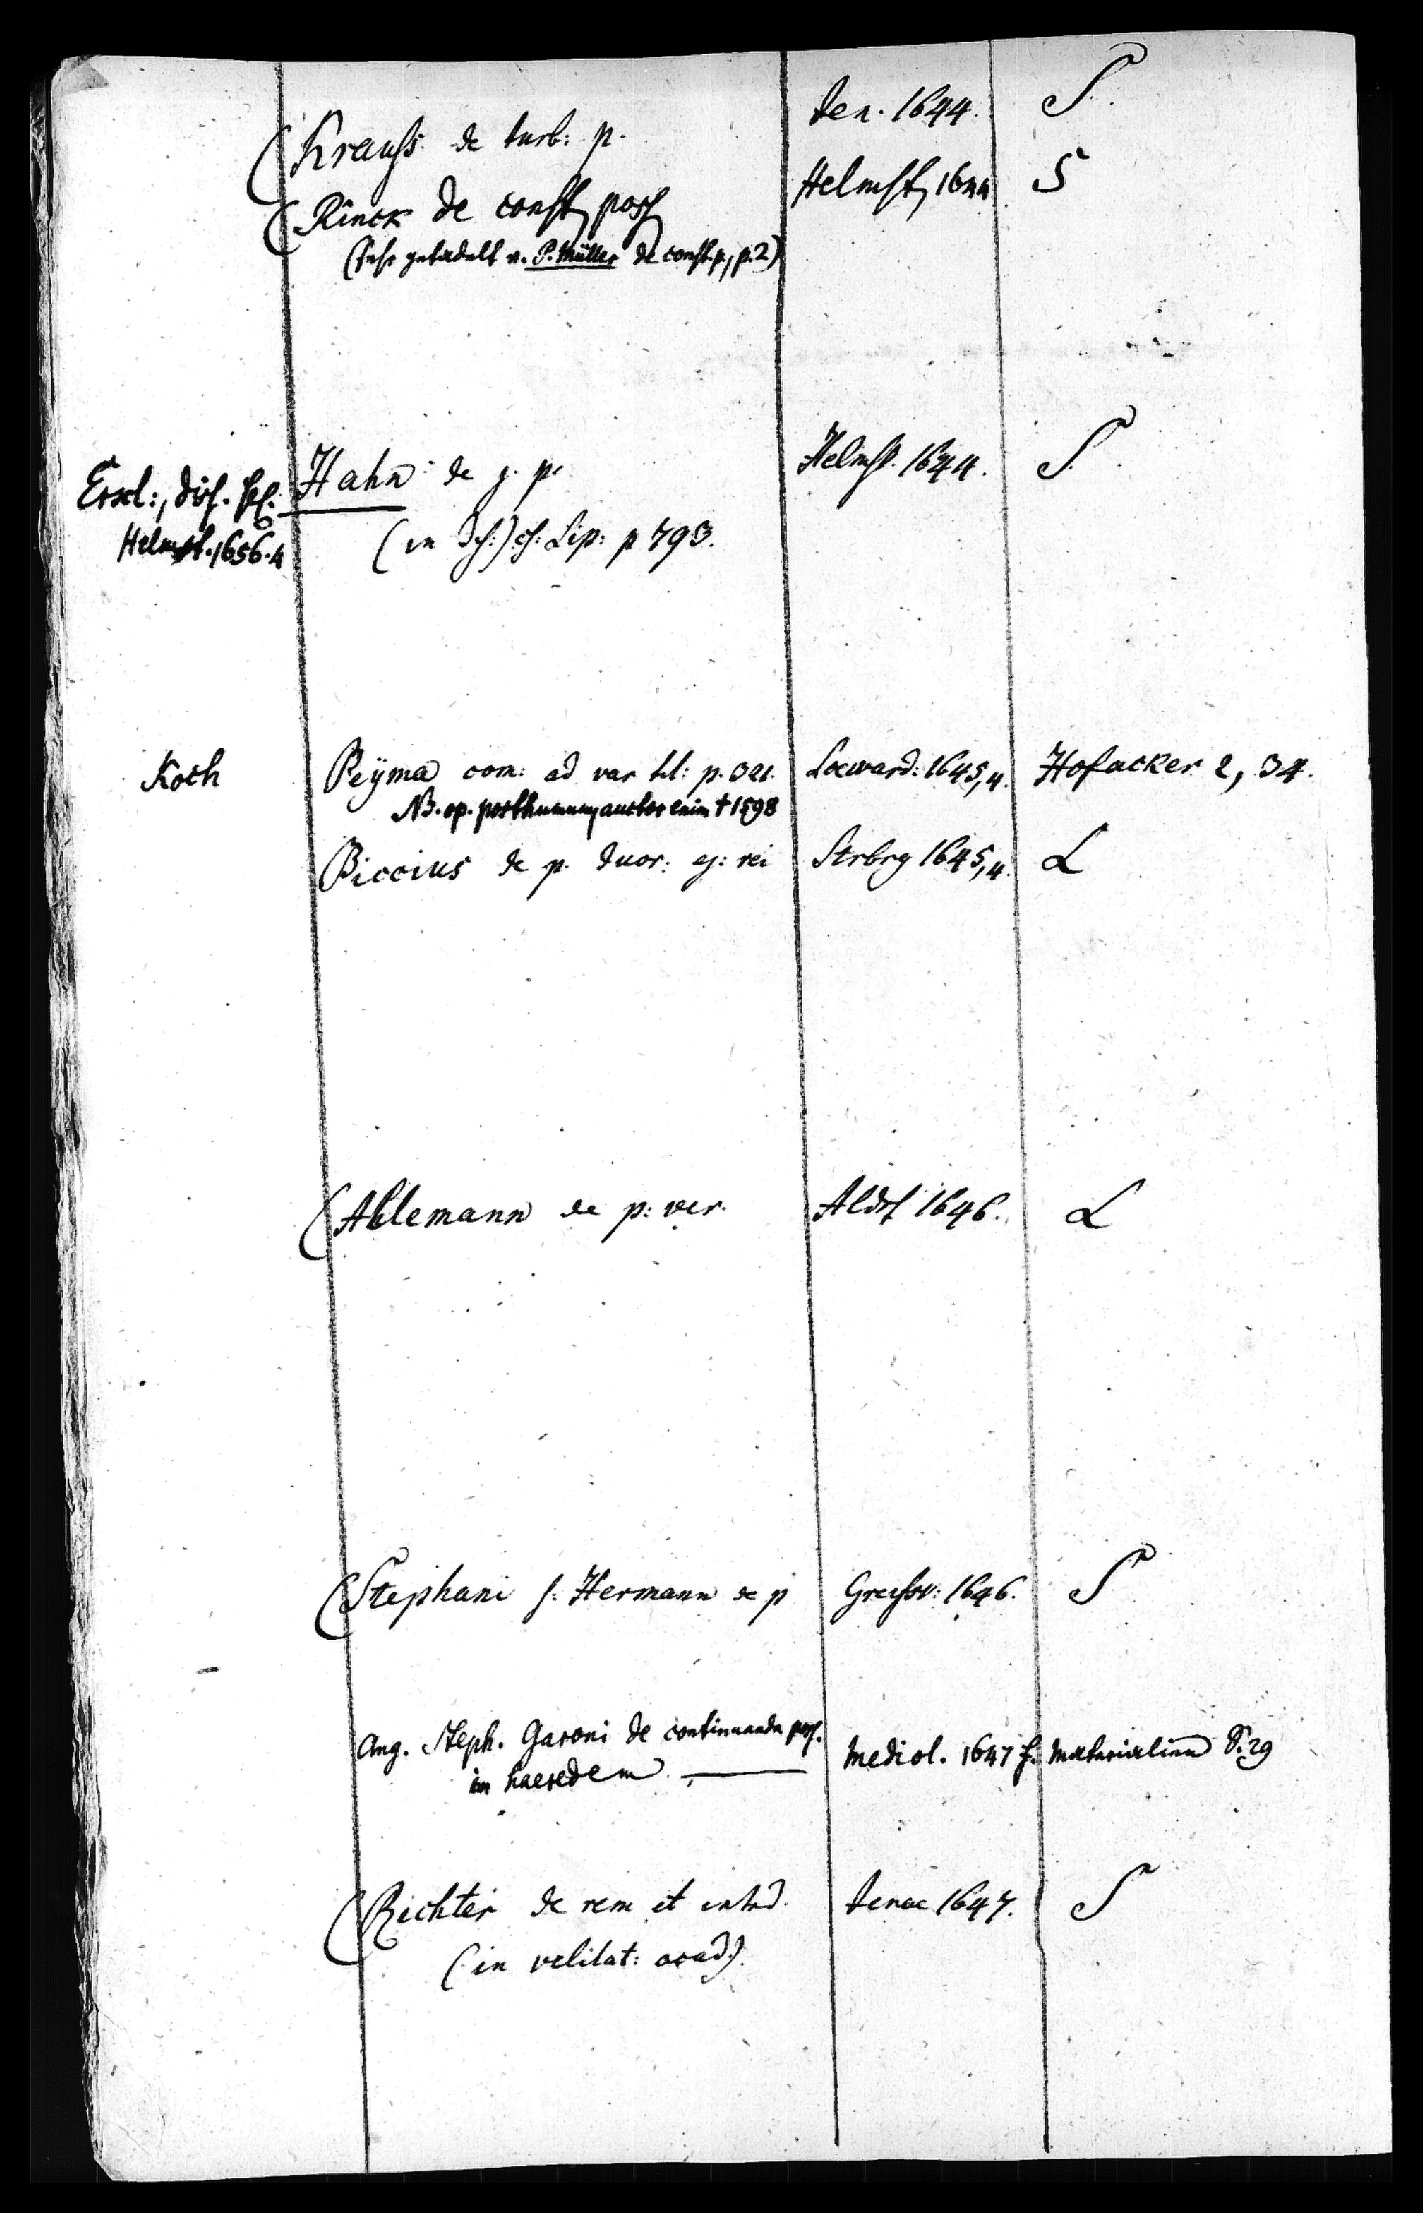 (Krauß de turb: p. Jen. 1644. S.
(Rinck de const, poss Helmst, 1644 S
(sehr getadelt v. P. Müller de const. p, p. 2)
Hahn de j. p. Helmst. 1644. S.
Excl:, diss. sel.
Helmst. 1656. 4 (in Sch:) cf. Lip: p 793.
Koch Peÿma com: ad var tit: p. 321. Leeward: 1645, 4. Hofacker 2, 34.
NB. op. posthumum, auctor enim † 1598
Biccius de p. duor: ej: rei Strbrg 1645, 4. L
(Ahlemann de p: ver. Altdf 1646. L
(Stephani s: Hermann de p Greifsw: 1646. S
Ang. Steph. Garoni de continuanda poss. Mediol. 1647 f. Materialien S. 29
in haeredem
(Richter de rem et interd. Jenae 1647. S
(in velitat: acad.)